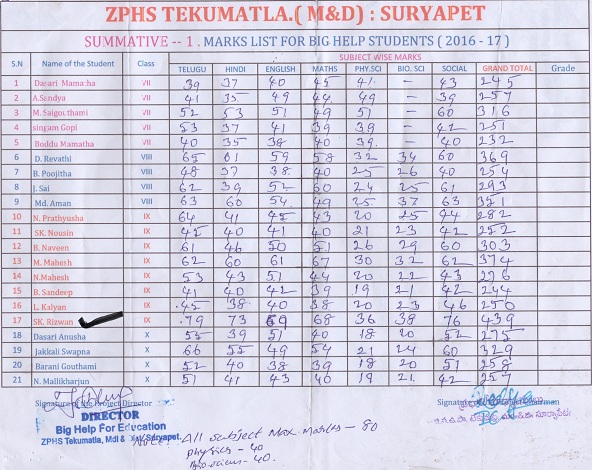 ZPHS TEKUMATLA.( M&D) : SURYAPET
SUMMATIVE -- 1 . MARKS LIST FOR BIG HELP STUDENTS ( 2016 - 17 )
S.N Name of the Student Class SUBJECT WISE MARKS
TELUGU HINDI ENGLISH MATHS PHY.SCI BIO. SCI SOCIAL GRAND TOTAL Grade
1 Dasari Mamatha VII 39 37 40 45 41 - 43 245
2 A.Sandya VII 41 35 49 44 49 - 39 257
3 M. Saigouthami VII 52 53 51 49 51 - 60 316
4 singam Gopi VII 53 37 41 39 39 - 42 251
5 Boddu Mamatha VII 40 35 38 40 39 - 40 232
6 D. Revathi VIII 65 61 59 58 32 34 60 369
7 B. Poojitha VIII 48 37 38 40 25 26 40 254
8 J. Sai VIII 62 39 52 60 24 25 61 293
9 Md. Aman VIII 63 60 54 49 25 37 63 351
10 N. Prathyusha IX 64 41 45 43 20 25 44 282
11 SK. Nousin IX 45 40 41 40 21 23 42 252
12 B. Naveen IX 61 46 50 51 26 29 60 303
13 M. Mahesh IX 62 60 61 67 30 32 62 374
14 N.Mahesh IX 53 43 51 44 20 22 43 276
15 B. Sandeep IX 41 40 42 39 19 21 42 244
16 L. Kalyan IX 45 38 40 38 20 23 46 250
17 SK. Rizwan IX 79 73 69 68 36 38 76 439
18 Dasari Anusha X 55 39 51 40 18 20 52 275
19 Jakkali Swapna X 66 55 49 54 21 24 60 329
20 Barani Gouthami X 52 40 38 39 18 20 51 258
21 N. Mallikharjun X 51 41 43 40 19 21 42 257
Signature of the Project Director
DIRECTOR
Big Help For Education
ZPHS Tekumatla, Mdl & Suryapet.
Note: All Subject Max. Marks - 80
Physics - 40
Bio science - 40.